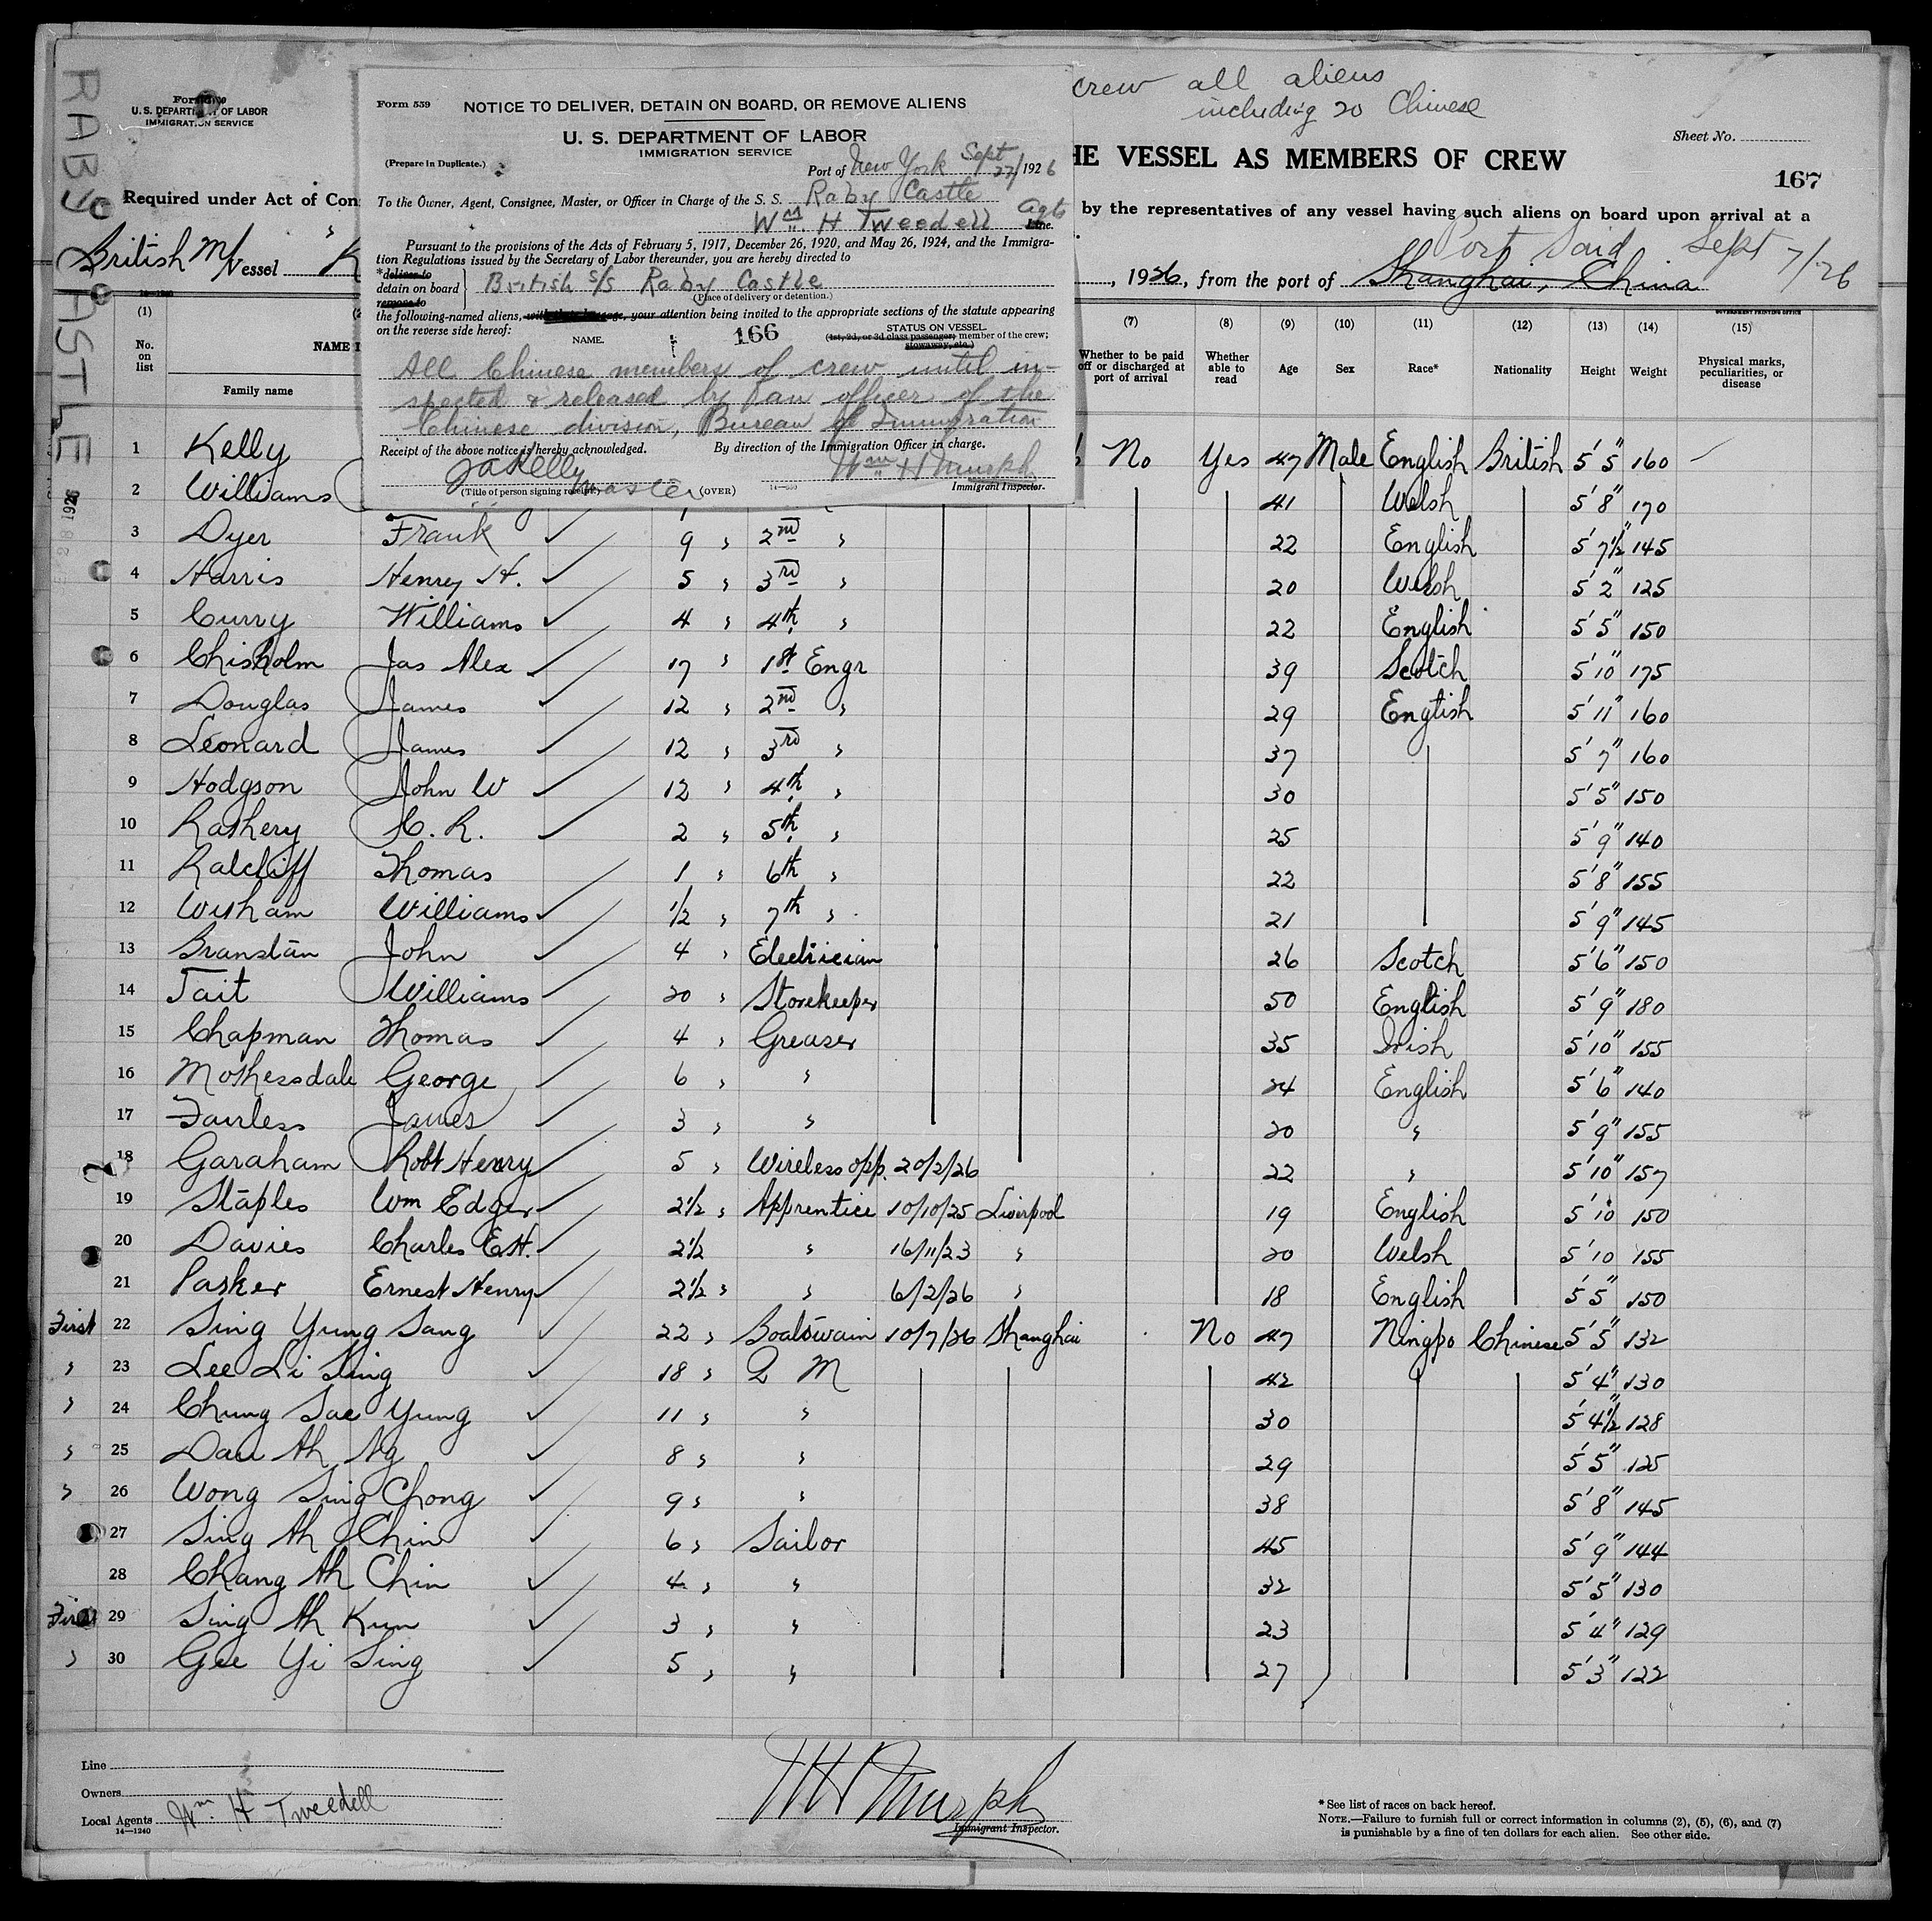 RABY CASTLE
Form 559
NOTICE TO DELIVER, DETAIN ON BOARD, OR REMOVE ALIENS
U. S. DEPARTMENT OF LABOR
IMMIGRATION SERVICE
(Prepare in Duplicate.)
Port of New York Sept 27/ 1926
To the Owner, Agent, Consignee, Master, or Officer in Charge of the S. S. Raby Castle
Wm. H Tweedell Agts Line.
Pursuant to the provisions of the Acts of February 5, 1917, December 26, 1920, and May 26, 1924, and the Immigra-
tion Regulations issued by the Secretary of Labor thereunder, you are hereby directed to
*deliver to
detain on board } British S/S Raby Castle
remove to
(Place of delivery or detention.)
the following-named aliens, with their baggage, your attention being invited to the appropriate sections of the statute appearing
on the reverse side hereof:
NAME. 166 STATUS ON VESSEL
(1st, 2d, or 3d class passenger; member of the crew;
stowaway, etc.)
All Chinese members of crew until in-
spected & released by an officer of the
Chinese division, Bureau of Immigration
Receipt of the above notice is hereby acknowledged. By direction of the Immigration Officer in charge.
JA Kelly Wm H Murph
Master
(Title of person signing receipt.) (OVER) 14—559 Immigrant Inspector.
Form
U. S. DEPARTMENT OF LABOR
IMMIGRATION SERVICE
crew all aliens
including 20 Chinese
Sheet No.
HE VESSEL AS MEMBERS OF CREW
167
Required under Act of Con
by the representatives of any vessel having such aliens on board upon arrival at a
British M/Vessel
, 1926, from the port of Shanghai, China
Port Said Sept 7/26
14—1240
GOVERNMENT PRINTING OFFICE
(1) (7) (8) (9) (10) (11) (12) (13) (14) (15)
No. on list
Family name
Whether to be paid off or discharged at port of arrival
Whether able to read
Age Sex Race* Nationality Height Weight
Physical marks, peculiarities, or disease
1 Kelly No Yes 47 Male English British 5'5" 160
2 Williams 41 Welsh 5'8" 170
3 Dyer Frank 9 " 2nd " 22 English 5'7½" 145
4 Harris Henry H. 5 " 3rd " 20 Welsh 5'2" 125
5 Curry Williams 4 " 4th " 22 English 5'5" 150
6 Chisholm Jas Alex 17 " 1st Engr 39 Scotch 5'10" 175
7 Douglas James 12 " 2nd " 29 English 5'11" 160
8 Leonard James 12 " 3rd " 37 5'7" 160
9 Hodgson John W 12 " 4th " 30 5'5" 150
10 Rashery C. R. 2 " 5th " 25 5'9" 140
11 Ralcliff Thomas 1 " 6th " 22 5'8" 155
12 Wisham Williams ½ " 7th " 21 5'9" 145
13 Branstan John 4 " Electrician 26 Scotch 5'6" 150
14 Tait Williams 20 " Storekeeper 50 English 5'9" 180
15 Chapman Thomas 4 " Greaser 35 Irish 5'10" 155
16 Mothersdale George 6 " " 24 English 5'6" 140
17 Fairless James 3 " " 20 " 5'9" 155
18 Garaham Robt Henry 5 " Wireless opp. 20/2/26 22 " 5'10" 157
19 Staples Wm Edger 2½ " Apprentice 10/10/25 Liverpool 19 English 5'10 150
20 Davies Charles E.H. 2½ " 16/11/23 " 20 Welsh 5'10 155
21 Parker Ernest Henry 2½ " " 6/2/26 " 18 English 5'5" 150
First 22 Sing Yung Sang 22 " Boatswain 10/7/26 Shanghai No 47 Ningpo Chinese 5'5" 132
" 23 Lee Li Sing 18 " Q M 42 5'4" 130
" 24 Chung Sae Yung 11 " " 30 5'4½" 128
" 25 Dau Ah Ng 8 " " 29 5'5" 125
" 26 Wong Sing Chong 9 " " 38 5'8" 145
27 Sing Ah Chin 6 " Sailor 45 5'9" 144
28 Chang Ah Chin 4 " " 32 5'5" 130
First 29 Sing Ah Kun 3 " " 23 5'4" 129
" 30 Gee Yi Sing 5 " " 27 5'3" 122
Line
Owners
Local Agents Wm. H Tweedell
14—1240
WH Murph
Immigrant Inspector.
* See list of races on back hereof.
NOTE.—Failure to furnish full or correct information in columns (2), (5), (6), and (7)
is punishable by a fine of ten dollars for each alien. See other side.